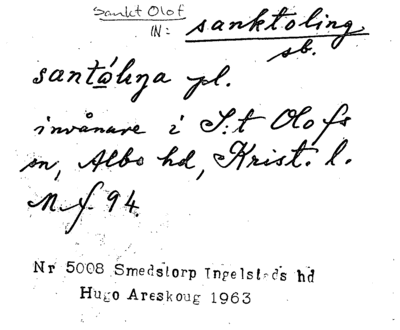 Sankt Olof
IN: sanktoling
sb.
pl.
invånare i S:t Olofs
sn, Albo hd, Krist. l.
M.f. 94.
Nr 5008 Smedstorp Ingelsteds hd
Hugo Areskoug 1963